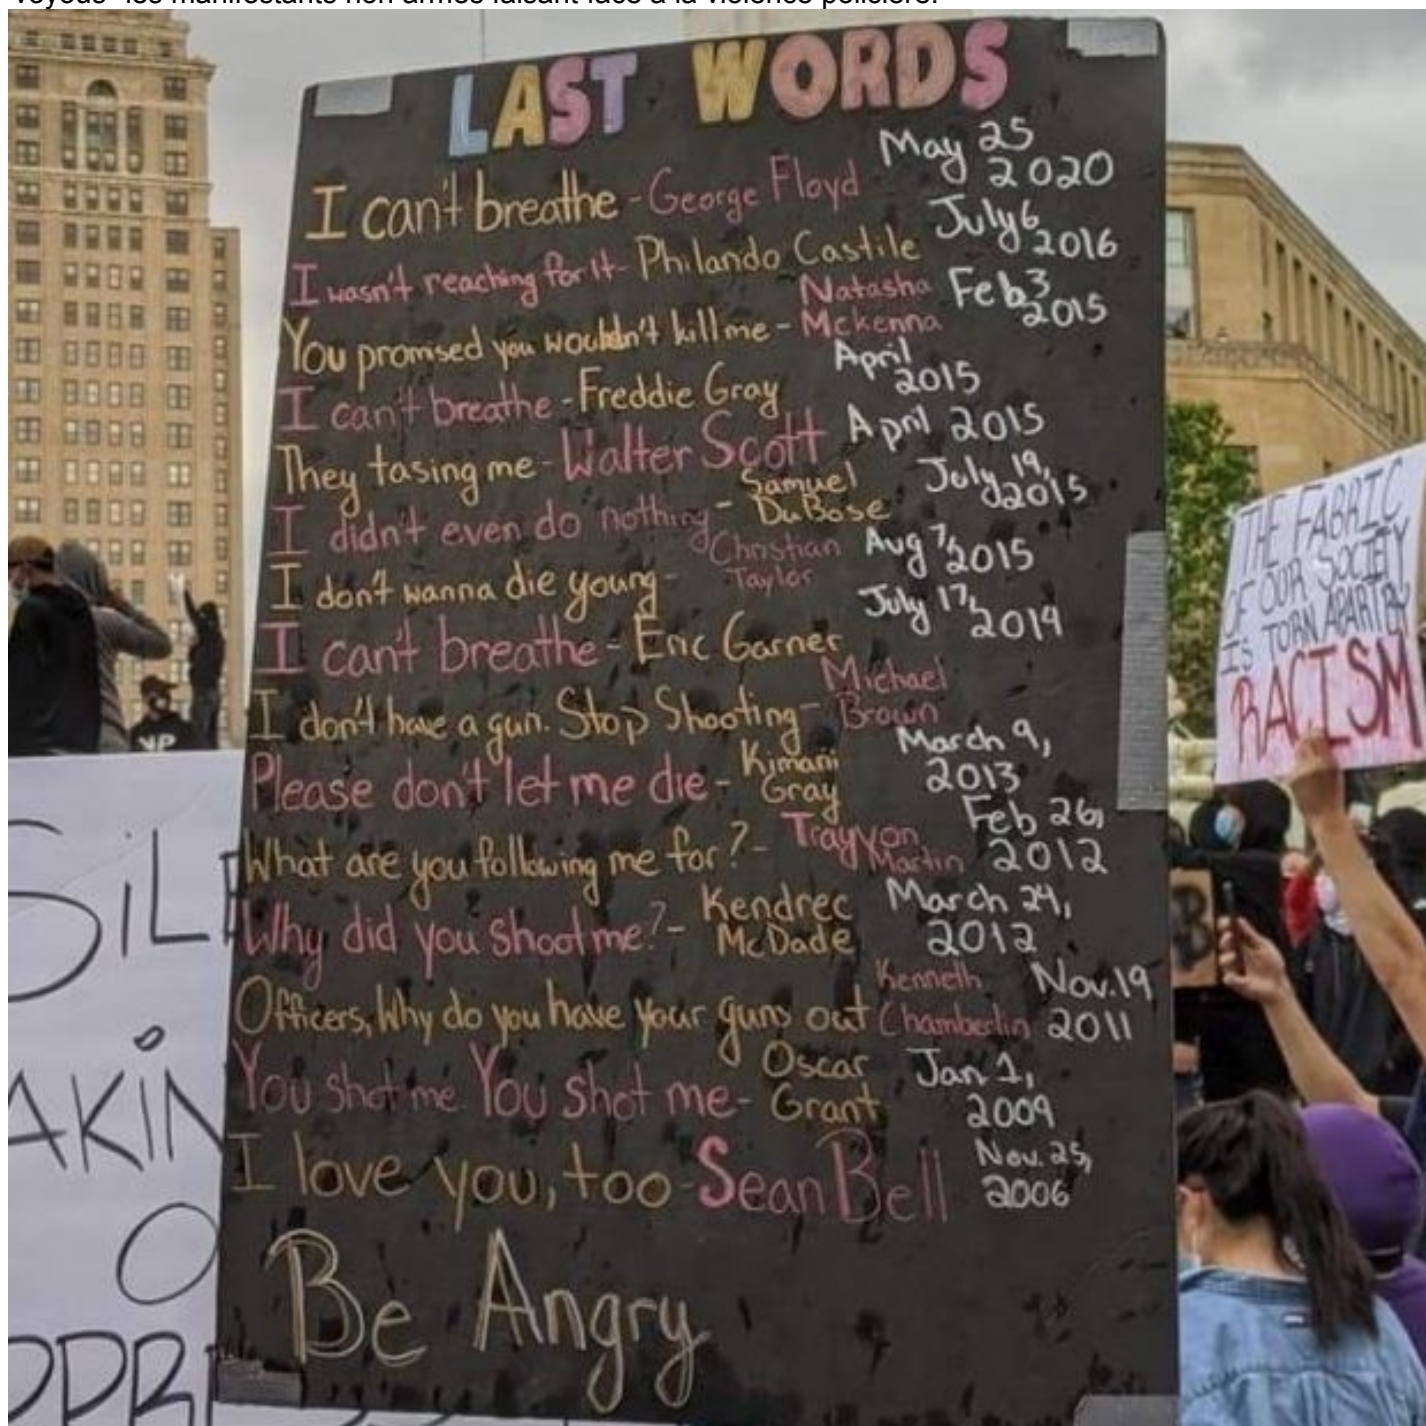 voyous" les manifestants non armés faisant face à la violence policière.
LAST WORDS
I can't breathe - George Floyd May 25 2020
I wasn't reaching for it - Philando Castile July 6 2016
You promised you wouldn't kill me - Natasha Mckenna Feb 3 2015
I can't breathe - Freddie Gray April 2015
They tasing me - Walter Scott April 2015
I didn't even do nothing - Samuel DuBose July 19, 2015
I don't wanna die young - Christian Taylor Aug 7, 2015
I can't breathe - Eric Garner July 17, 2014
I don't have a gun. Stop Shooting - Michael Brown
Please don't let me die - Kimani Gray March 9, 2013
What are you following me for? - Trayvon Martin Feb 26, 2012
Why did you shoot me? - Kendrec McDade March 24, 2012
Officers, Why do you have your guns out Kenneth Chamberlin Nov. 19 2011
You shot me. You shot me - Oscar Grant Jan 1, 2009
I love you, too - Sean Bell Nov. 25, 2006
Be Angry
THE FABRIC
OF OUR SOCIETY
IS TORN APART BY
RACISM
SiL
AKiN
O
PPR